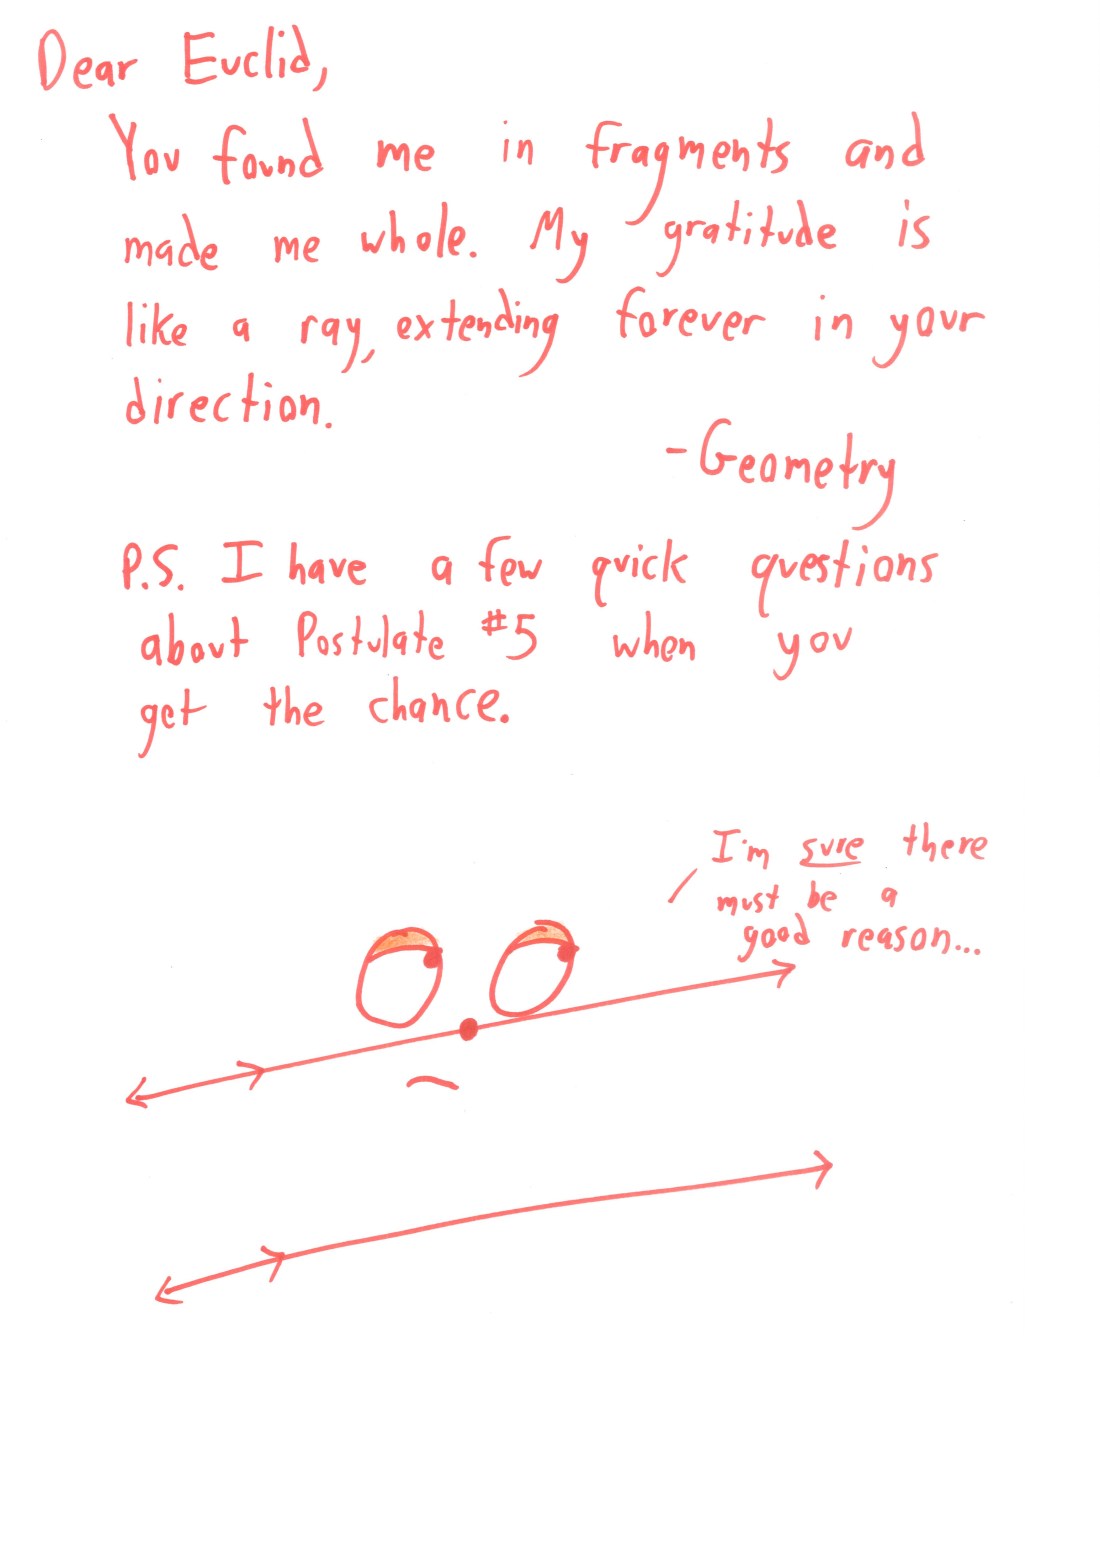 Dear Euclid,
You found me in fragments and
made me whole. My gratitude is
like a ray, extending forever in your
direction.
-Geometry
P.S. I have a few quick questions
about Postulate #5 when you
get the chance.
I'm sure there
must be a
good reason...